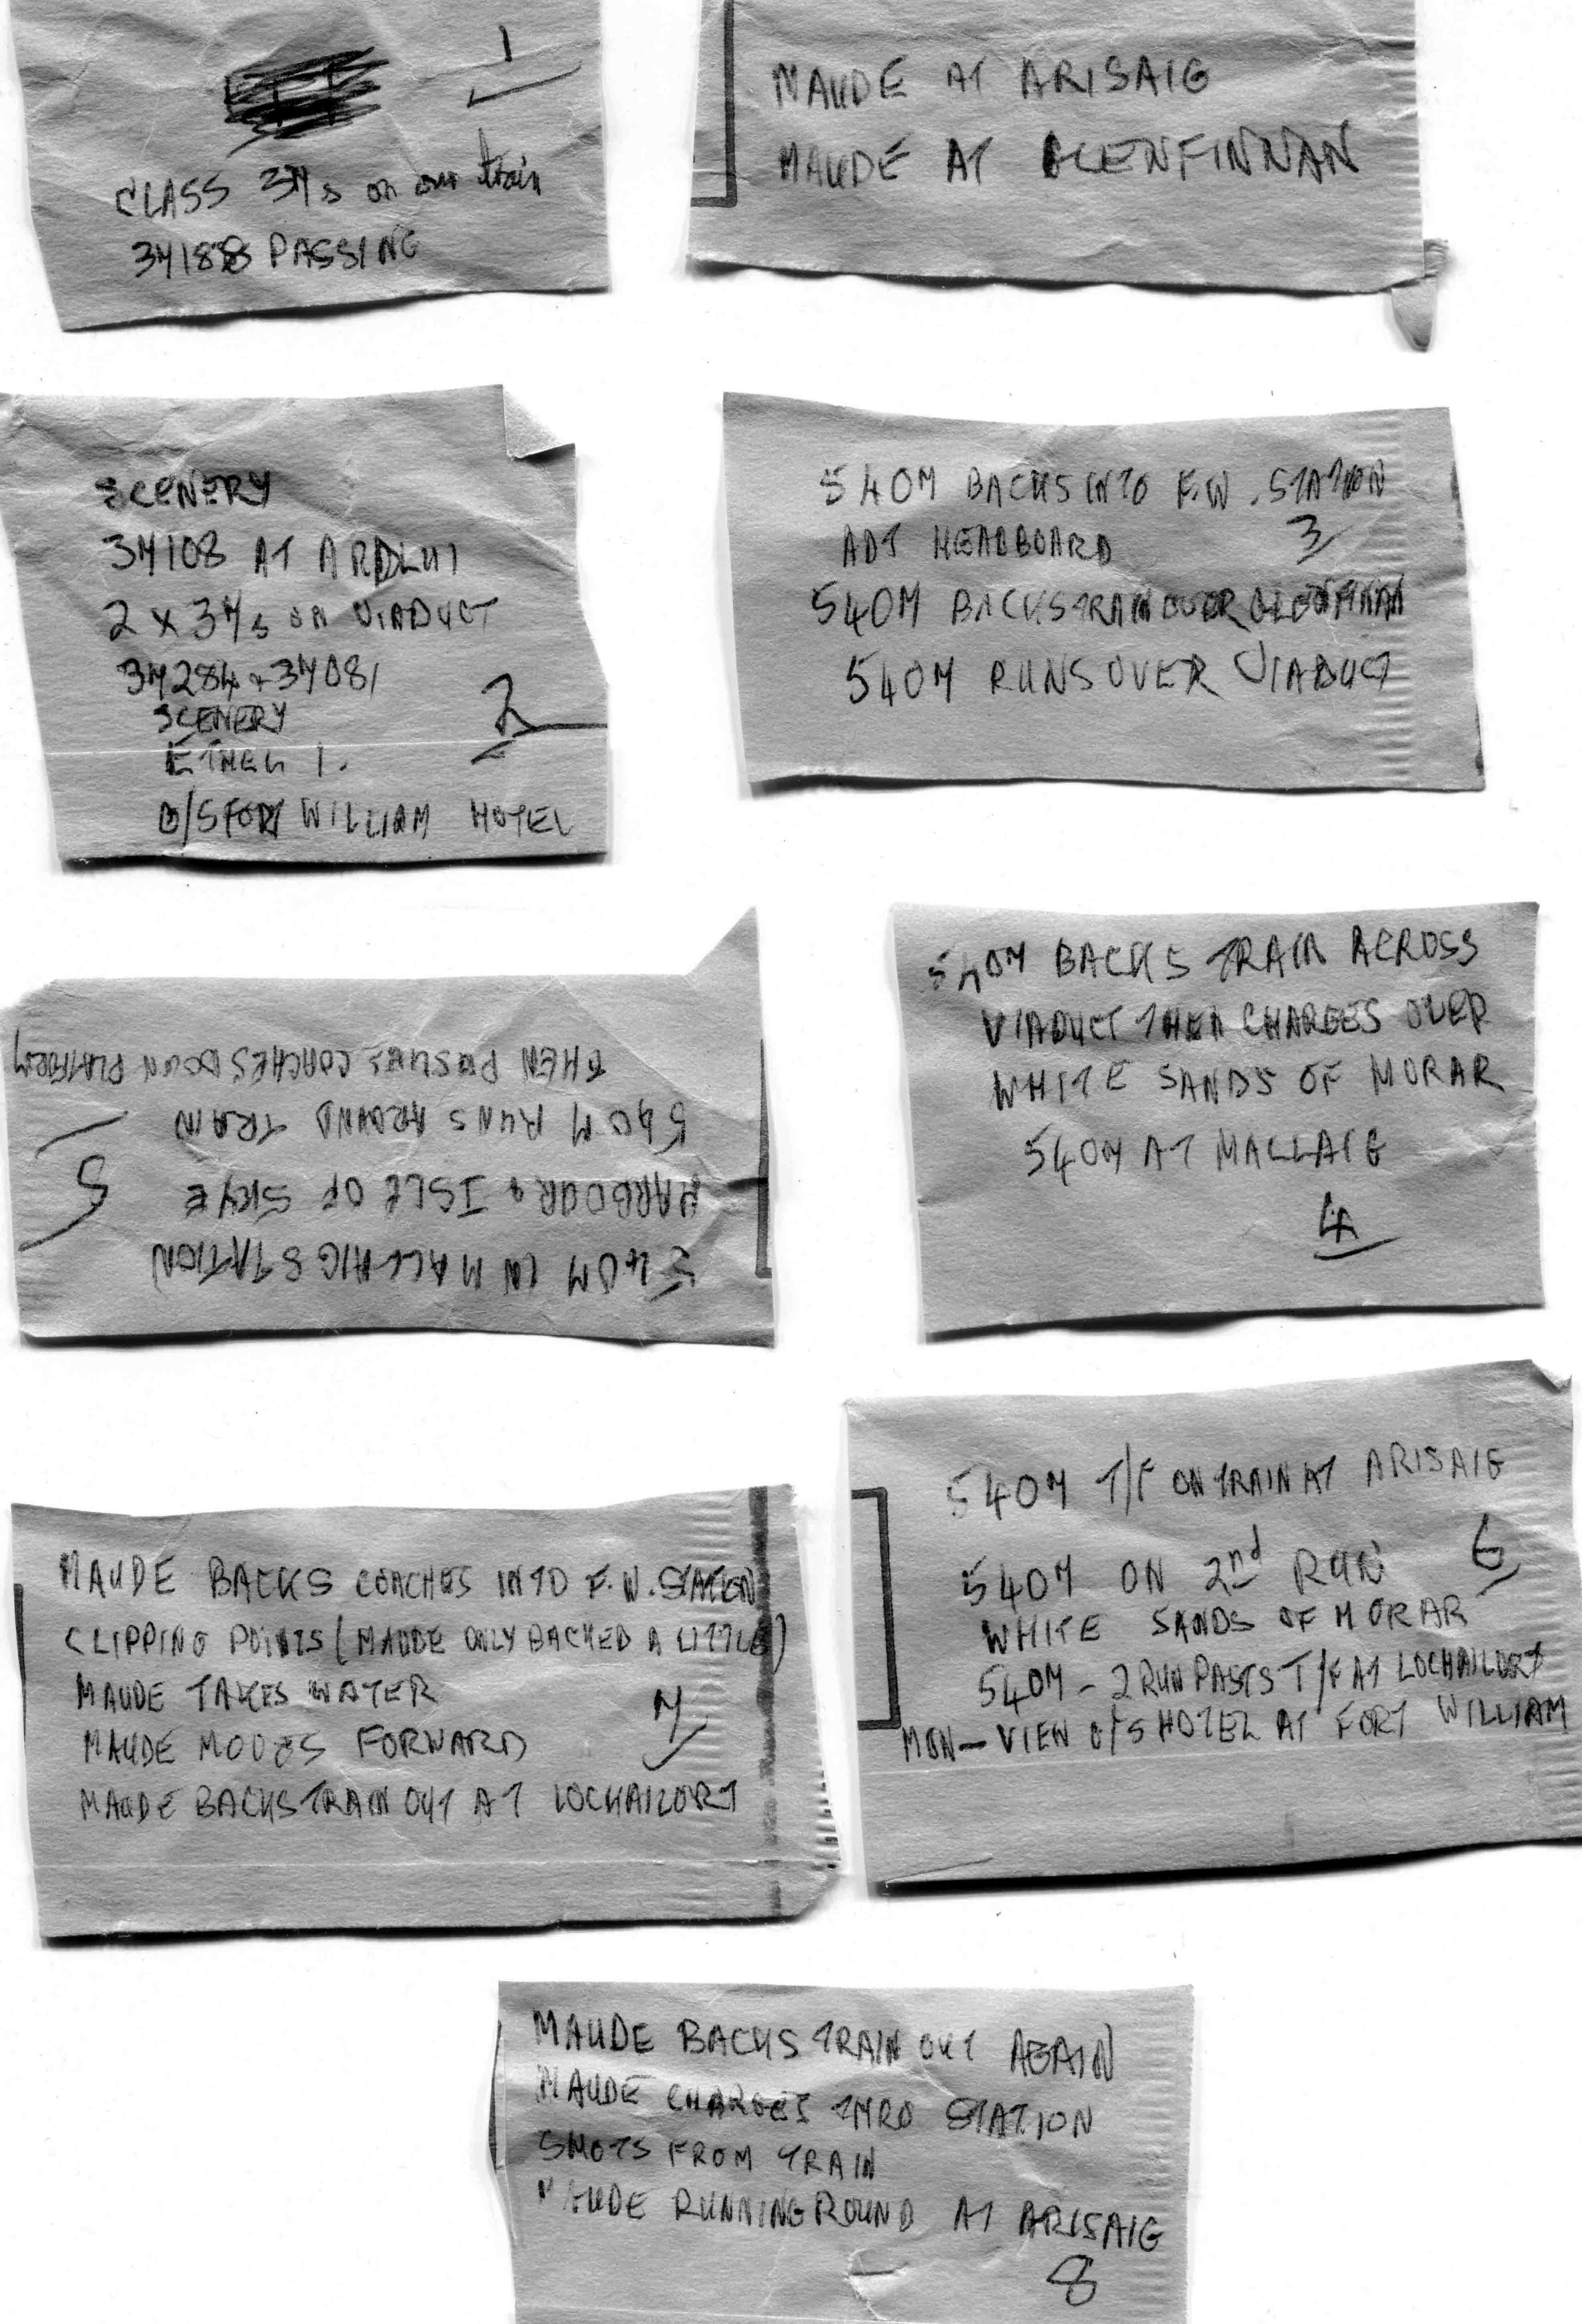 1
CLASS 37s on our train
37188 PASSING
MAUDE AT ARISAIG
MAUDE AT GLENFINNAN
SCENERY
37108 AT ARDLUI
2 x 37s ON VIADUCT
37284 + 37081
SCENERY
2
ETHEL 1.
O/S FORT WILLIAM HOTEL
5407 BACKS INTO F.W. STATION
ADT HEADBOARD 3
5407 BACKS TRAIN OVER GLENFINNAN
5407 RUNS OVER VIADUCT
5407 IN MALLAIG STATION
HARBOUR & ISLE OF SKYE
5
5407 RUNS AROUND TRAIN
THEN PUSHES COACHES DOWN PLATFORM
5407 BACKS TRAIN ACROSS
VIADUCT THEN CHARGES OVER
WHITE SANDS OF MORAR
5407 AT MALLAIG
4
MAUDE BACKS COACHES INTO F.W. STATION
CLIPPING POINTS (MAUDE ONLY BACKED A LITTLE)
MAUDE TAKES WATER
7
MAUDE MOVES FORWARD
MAUDE BACKS TRAIN OUT AT LOCHAILORT
5407 T/F ON TRAIN AT ARISAIG
5407 ON 2nd RUN 6
WHITE SANDS OF MORAR
5407 - 2 RUN PASTS T/F AT LOCHAILORT
MON - VIEW O/S HOTEL AT FORT WILLIAM
MAUDE BACKS TRAIN OUT AGAIN
MAUDE CHARGES THRO STATION
SHOTS FROM TRAIN
MAUDE RUNNING ROUND AT ARISAIG
8